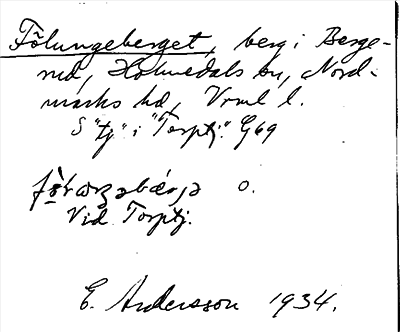 Fölungeberget, berg i Berge-
rud, Holmedals sn, Nord-
marks hd, Vrml l.
S "tj" i "Torptj." G69
o.
Vid Torptj.
E. Andersson 1934.